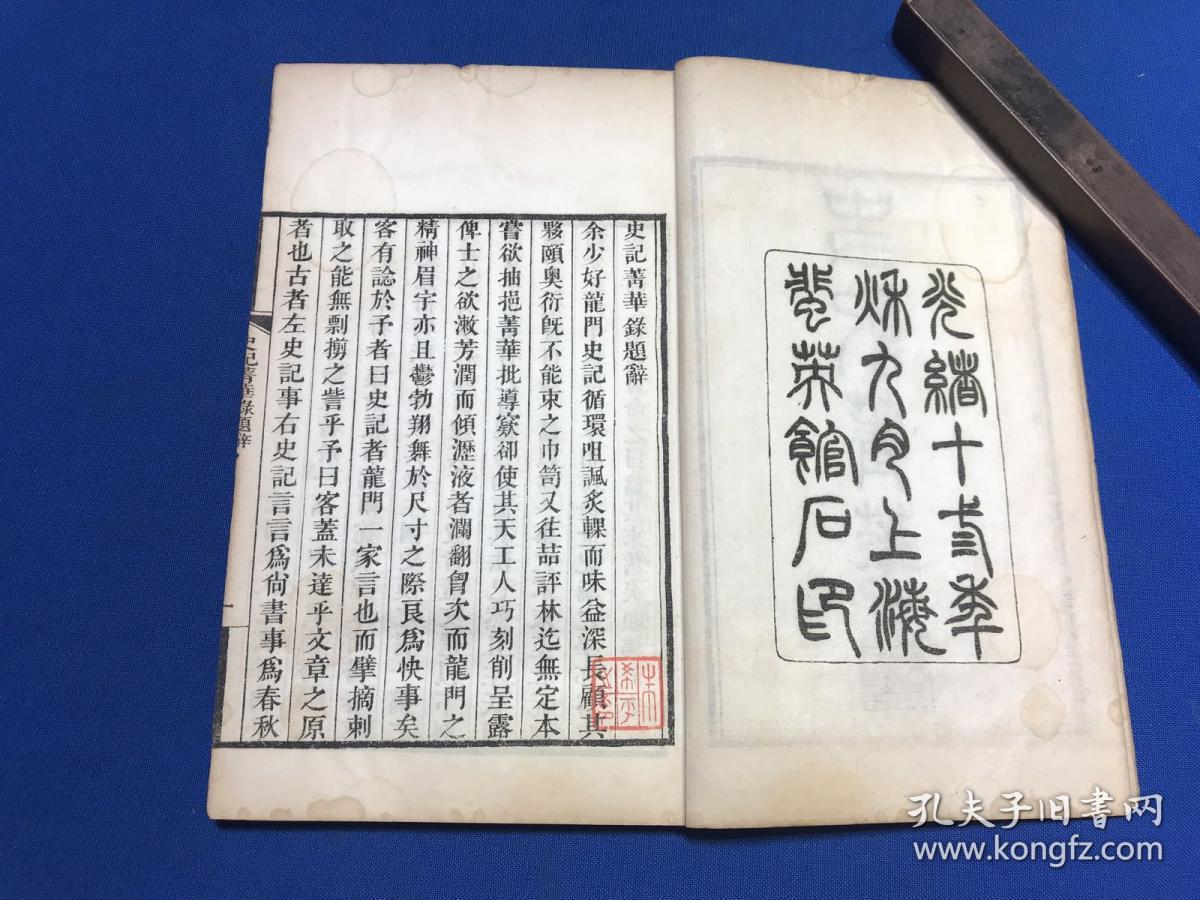 光緒十三年
秌九月上海
蜚英館石印
史記菁華錄題辭
余少好龍門史記循環咀諷炙輠而味益深長顧其
夥頤奧衍旣不能束之巾笥又往喆評林迄無定本
嘗欲抽挹菁華批導窾卻使其天工人巧刻削呈露
俾士之欲漱芳潤而傾瀝液者瀾翻胷次而龍門之
精神眉宇亦且鬱勃翔舞於尺寸之際良爲快事矣
客有諗於予者曰史記者龍門一家言也而擘摘剌
取之能無剽撏之訾乎予曰客蓋未達乎文章之原
者也古者左史記事右史記言言爲尙書事爲春秋
史記菁華錄題辭
一
孔夫子旧书网
www.kongfz.com